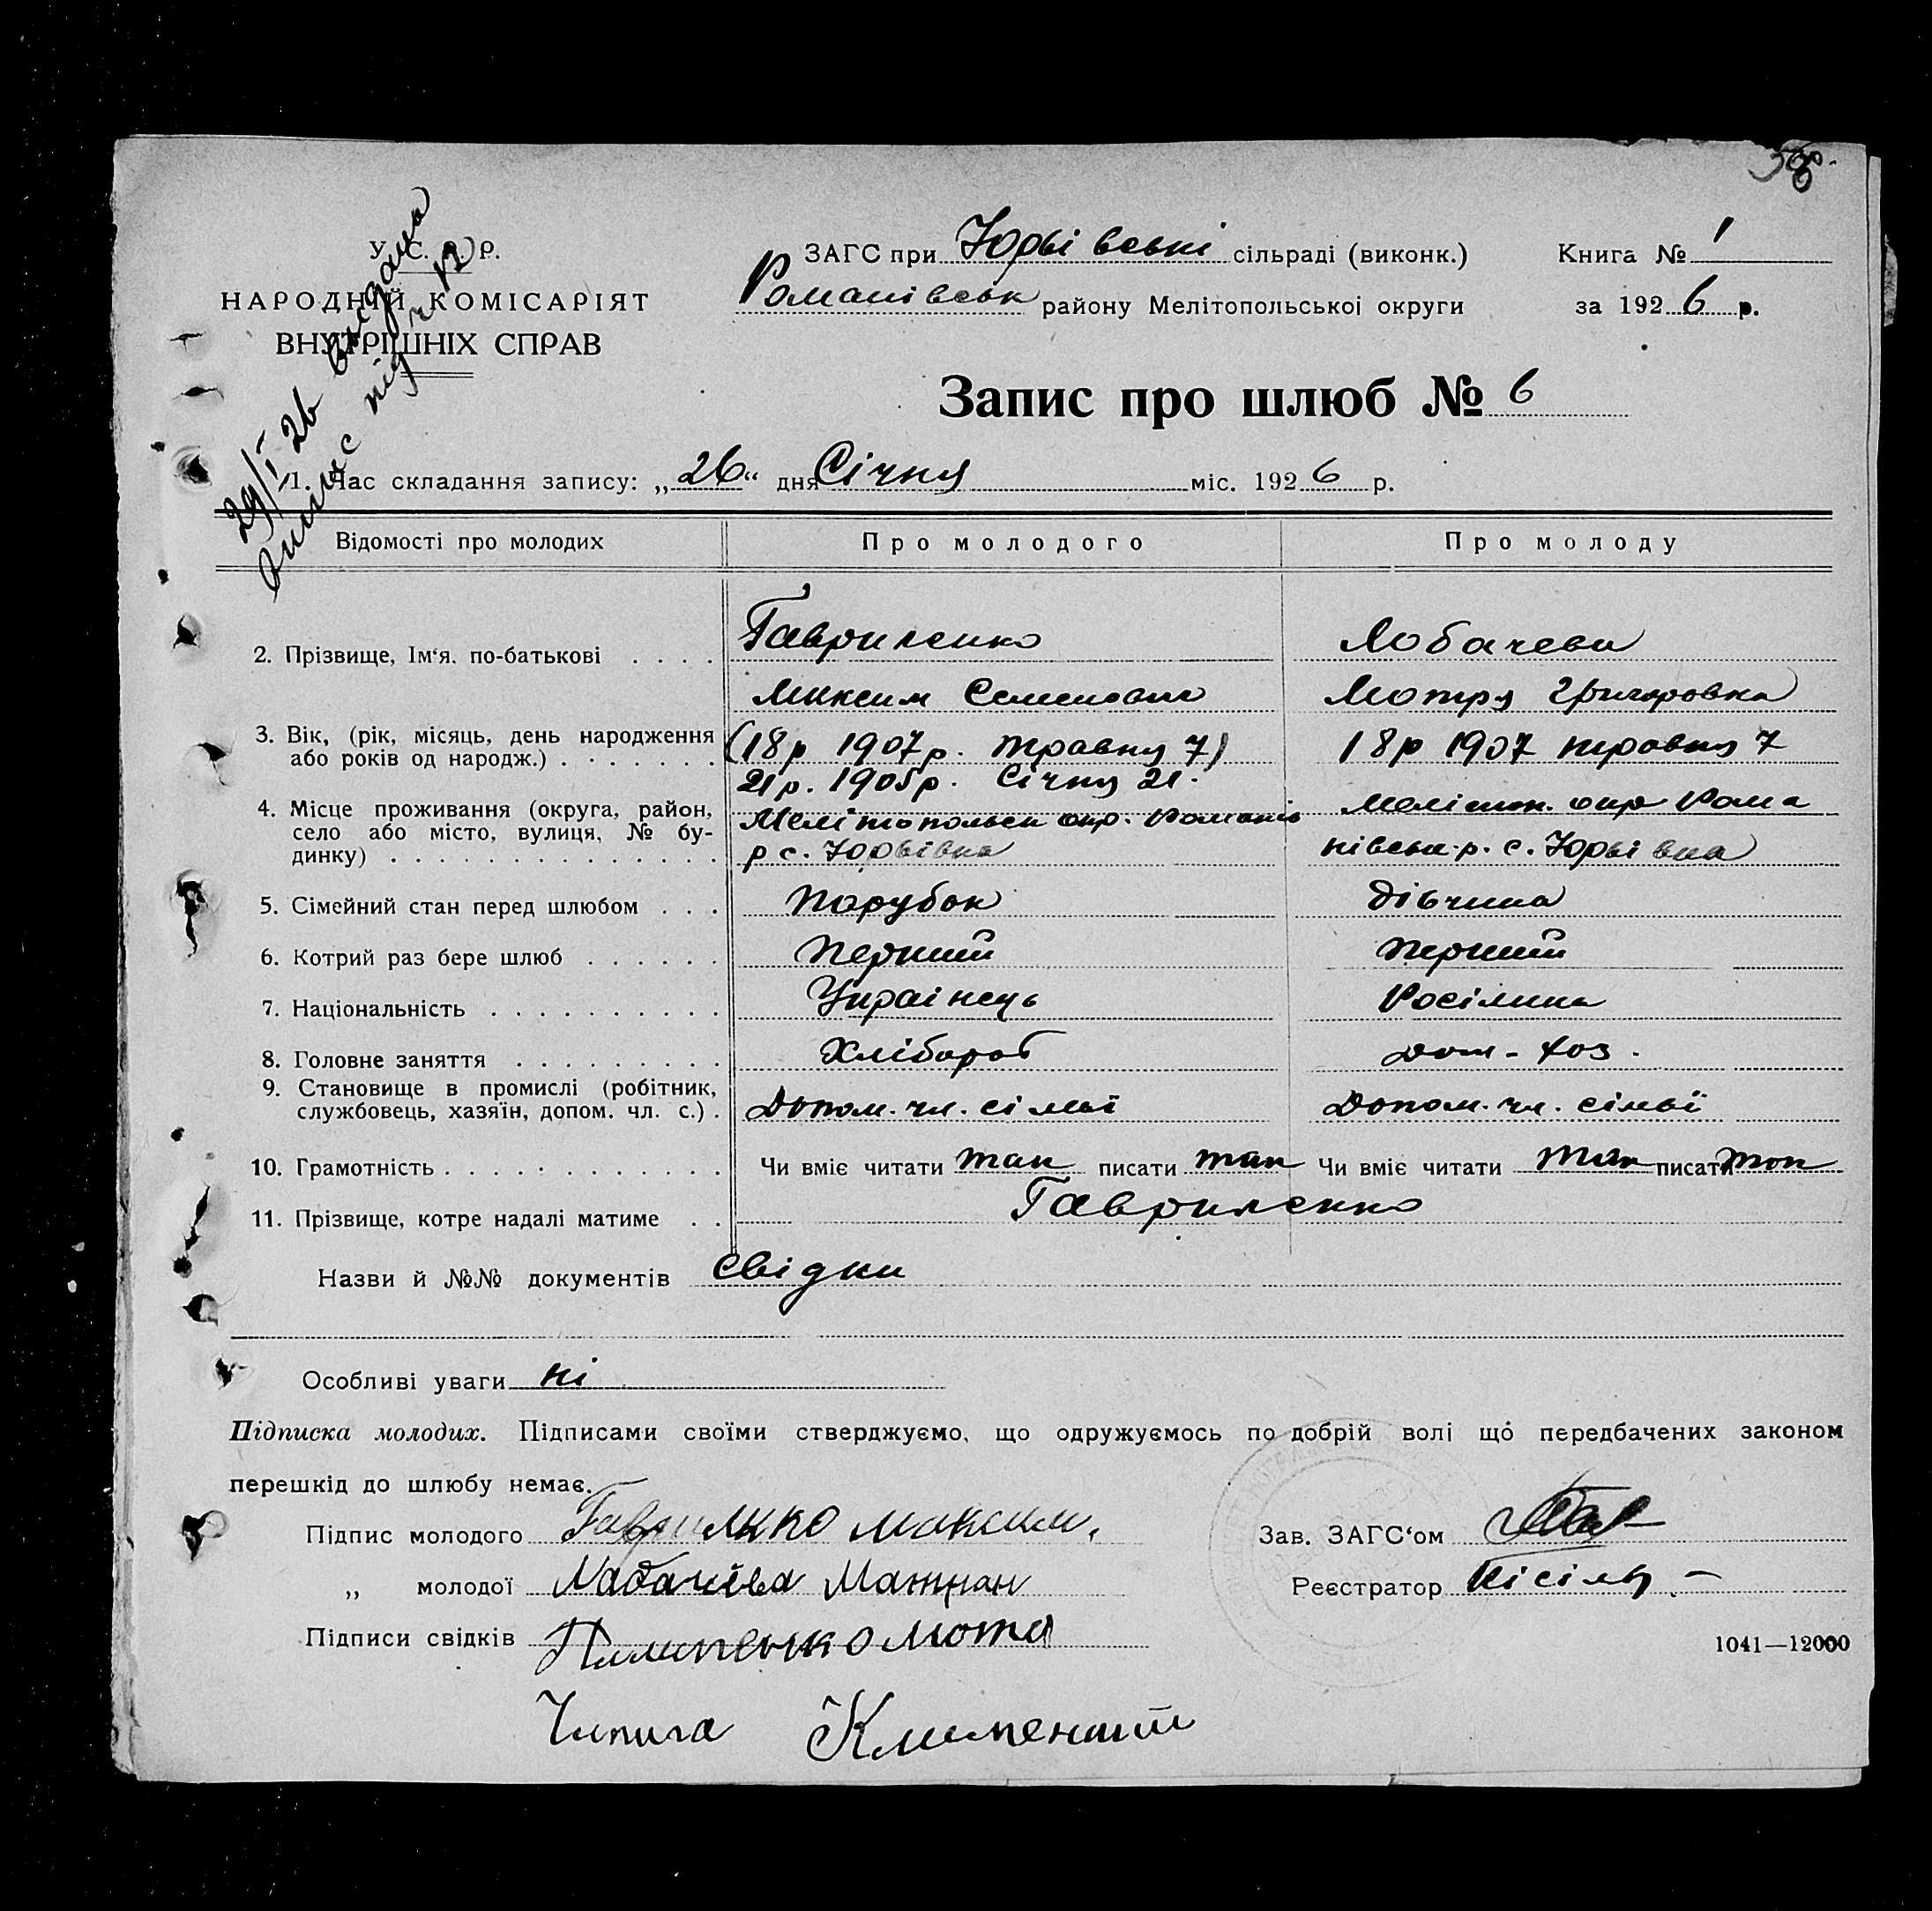 У. С. Р. Р.
НАРОДНІЙ КОМІСАРІЯТ
ВНУТРІШНІХ СПРАВ
29/I-26 видана
випис під ч 12
ЗАГС при Юрʼївські сільраді (виконк.)
Романівськ району Мелітопольської округи
Книга № 1
за 1926 р.
Запис про шлюб № 6
1. Час складання запису: „26“ дня Січня міс. 1926 р.
Відомості про молодих Про молодого Про молоду
2. Прізвище, Ім‘я. по-батькові . . . . Гавриленко Лобачева
Максим Семенович Мотря Григоровна
3. Вік, (рік, місяць, день народження (18р 1907р. травня 7) 18р 1907 травня 7
або років од народж.) . . . . . . . 21р. 1905р. Січня 21.
4. Місце проживання (округа, район, Мелітопольськ окр. Романів Меліт. окр Рома
село або місто, вулиця, № бу-
динку) . . . . . . . . . . . . . . р с. Юрʼївка нівськ. р. с. Юрʼївка
5. Сімейний стан перед шлюбом . . . Парубок Дівчина
6. Котрий раз бере шлюб . . . . . . Перший Перший
7. Національність . . . . . . . . . . Українець Росіянка
8. Головне заняття . . . . . . . . . Хлібороб Дом-хоз.
9. Становище в промислі (робітник,
службовець, хазяїн, допом. чл. с.) . Допом. чл. сімьї Допом. чл. сімьї
10. Грамотність . . . . . . . . . . . . Чи вміє читати так писати так Чи вміє читати так писати так
11. Прізвище, котре надалі матиме . . Гавриленко
Назви й №№ документів Свідки
Особливі уваги ні
Підписка молодих. Підписами своїми стверджуємо, що одружуємось по добрій волі що передбачених законом
перешкід до шлюбу немає.
Підпис молодого Максим. Зав. ЗАГС‘ом
„ молодої Реєстратор Кісіль
Підписи свідків
1041—12000
Чипига